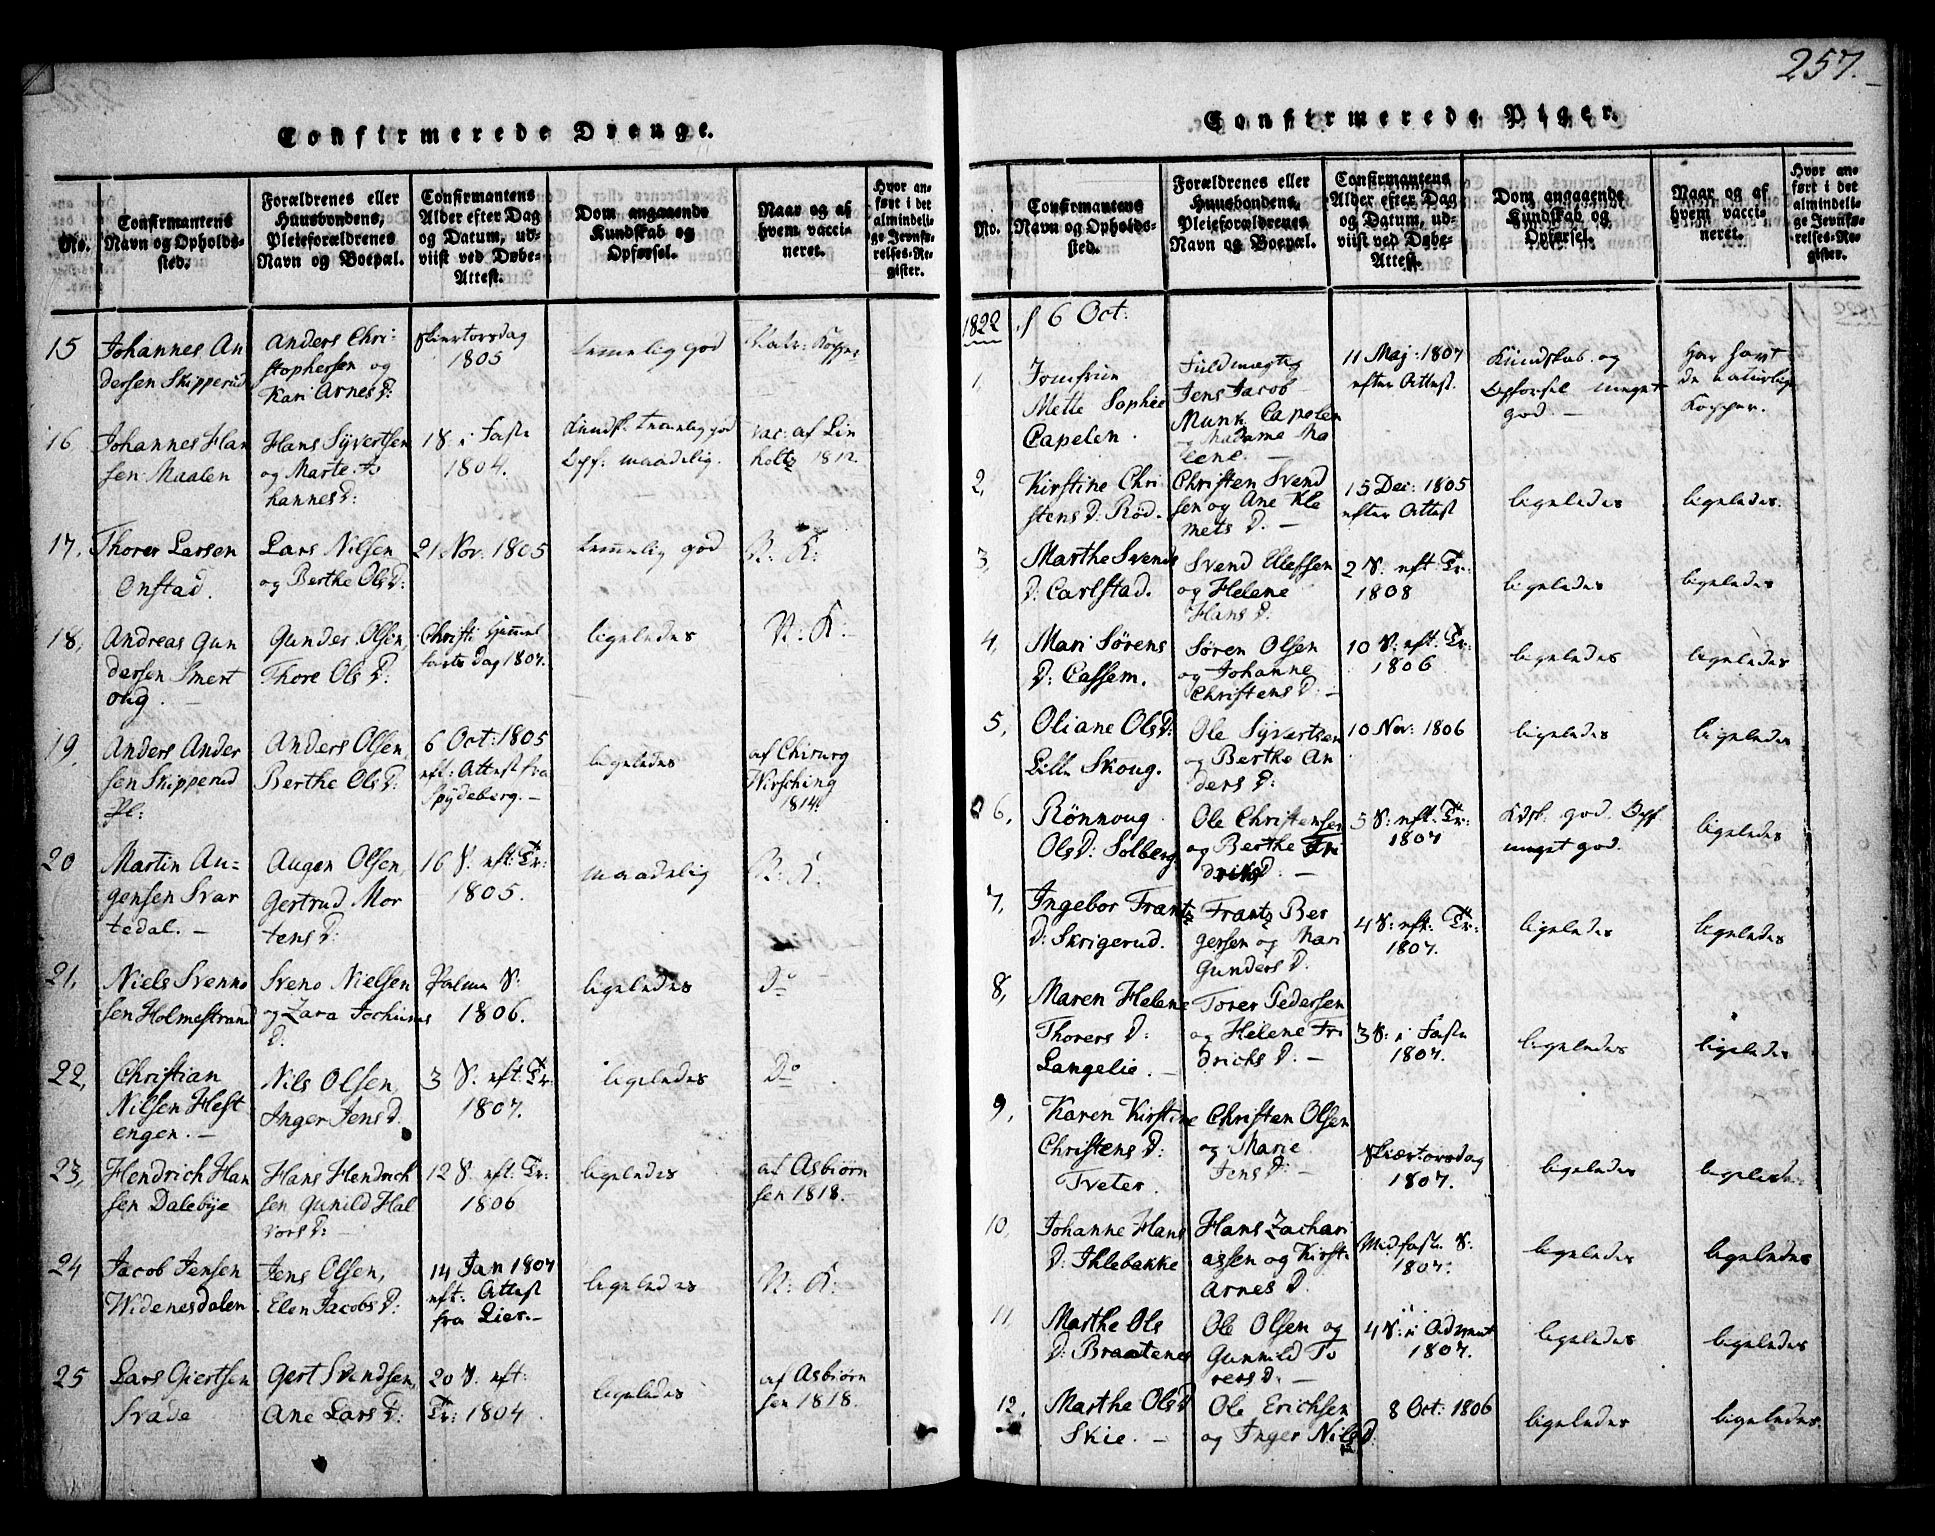 257.
Confirmerede Drenge.
No.
Confirmantens
Navn og Opholds-
sted.
Forældrenes eller
Huusbondens,
Pleieforældrenes
Navn og Boepæl.
Confirmantens
Alder efter Dag
og Datum, ud-
viist ved Døbe-
Attest.
Dom angaaende
Kundskab og
Opførsel.
Naar og af
hvem vacci-
neret.
Hvor an-
ført i det
almindeli-
ge Jevnfø-
relses-Re-
gister.
15
Johannes An
dersen Skipperud
Anders Chri-
stophersen og
Kari Arnes D:
Skiertorsdag
1805
temmelig god
16
Johannes Han
sen Maalen
Hans Syvertsen
og Marte Jo
hannes D:
18 i Faste
1804.
Kundsk: temelig god
Opf: maadelig.
vac: af Lin
holtz 1812.
17,
Thorer Larsen
Onstad.
Lars Nilsen
og Berthe Ols D:
21 Nov: 1805
temelig god
N: K:
18,
Andreas Gun
dersen Smert
oug. —
Gunder Olsen,
Thore Ols D:
Christi Himel
farts Dag 1807.
ligeledes
N: K:
19,
Anders Ander
sen Skipperud
Pl:
Anders Olsen,
Berthe Ols D:
6 Oct: 1805
eft: Attest fra
Spydeberg. —
ligeledes
af Chirurg
Nirsching
1814
20
Martin Au-
gensen Svar
tedal. —
Augen Olsen,
Gertrud Mor
tens D:
16 S. eft: Tr:
1805.
maadelig
N: K:
21,
Niels Svenno
sen Holmestrand
Sveno Nielsen
og Zara Jochums
D:
Palme S:
1806.
ligeledes
Do
22,
Christian
Nilsen Hest
engen. —
Nils Olsen,
Inger Jens D.
3 S. eft: Tr:
1807.
ligeledes
Do
23,
Hendrich Han
sen Dalebye
Hans Hendrich
sen Gunild Hal
vors D:
12 S. eft: Tr:
1806
ligeledes
af Asbiørn
sen 1818.
24
Jacob Jensen
Widenesdalen
Jens Olsen,
Elen Jacobs D:
14 Jan 1807
eft. Attest
fra Lier. —
ligeledes
N: K:
25
Lars Giertsen
Svade
Gert Svendsen,
Ane Lars D:
20 S. eft:
Tr: 1804
ligeledes
af Asbiørn
sen 1818.
Confirmerede Piger.
No.
Confirmantens
Navn og Opholds-
sted.
Forældrenes eller
Huusbondens,
Pleieforældrenes
Navn og Boepæl.
Confirmantens
Alder efter Dag
og Datum, ud-
viist ved Døbe-
Attest.
Dom angaaende
Kundskab og
Opførsel.
Naar og af
hvem vacci-
neret.
Hvor an-
ført i det
almindeli-
ge Jevnfø-
relses-Re-
gister.
1822
6 Oct:
1,
Jomfrue
Mette Sophie
Capelen.
Fuldmægtig
Jens Jacob
Munk Capelen
og Madame Ma
lene. —
11 Maj: 1807
efter Attest.
Kundskab og
Opførsel meget
god. —
Har havt
de naturlige
Kopper.
2,
Kirstine Chri
stens D: Rød.
Christen Svend
sen og Ane Kle
mets D. —
15 Dec: 1805
efter Attest
ligeledes
ligeledes.
3,
Marthe Svends
D: Carlstad.
Svend Ellefsen
og Helene
Hans D.
2 S: eft Tr:
1808
ligeledes
ligeledes
4,
Mari Sørens
D: Cassem.
Søren Olsen
og Johanne
Christens D. —
10 S: eft. Tr:
1806
ligeledes
ligeledes
5,
Oliane Ols D:
Lille Skoug.
Ole Syvertsen
og Berthe An
ders D:
10 Nov: 1806
ligeledes
ligeledes
6,
Rönnoug
Ols D: Solberg
Ole Christensen
og Berthe Fri
driks D. —
5 S: eft. Tr:
1807
Kdsk. god. Opf.
meget god.
ligeledes
7,
Ingebor Frantz
D: Skrigerud.
Frantz Ber
gersen og Mari
Gunders D.
4 S: eft. Tr:
1807.
ligeledes
ligeledes
8,
Maren Helene
Thorers D:
Langelie. —
Torer Pedersen
og Helene Fri
drichs D: —
3 S: i Faste
1807.
ligeledes
ligeledes
9,
Karen Kirstine
Christens D:
Tveter.
Christen Olsen
og Marie
Jens D: —
Skiærtorsdag
1807.
ligeledes
ligeledes
10,
Johanne Hans
D: Ihlebakke
Hans Zachari
assen og Kirsti
Arnes D.
Midfaste S.
1807.
ligeledes
ligeledes
11,
Marthe Ols
D: Braatenes
Ole Olsen og
Gunnild To
rers D. —
4 S: i Advent
1807.
ligeledes
ligeledes
12.
Marthe Ols D
Skie. —
Ole Erichsen
og Inger Nils D.
8 Oct: 1806
ligeledes
ligeledes.